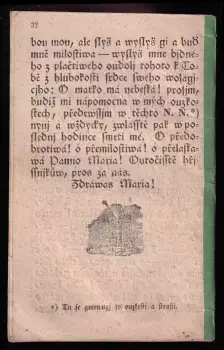 32
bou mou, ale slyš a wyslyš gi a buď
mně milostiwa — wyslyš mne bjdné-
ho z plačtiweho oudolj tohoto k To-
bě z hlubokosti srdce sweho wolagj-
cjho: O matko má nebeská! prosjm,
budiž mi nápomocna w mých ouzko-
stech, předewssjm w těchto N. N.*)
nynj a wždycky, zwlásstě pak w po-
slednj hodince smrti mé. O předo-
brotiwá! ó přemilostiwá! ó přelaska-
wá Panno Maria! Outočisstě hřj-
ssnjkůw, pros za nás.
Zdrawas Maria!
*) Tu se gmenugj ty auzkosti a strasti.